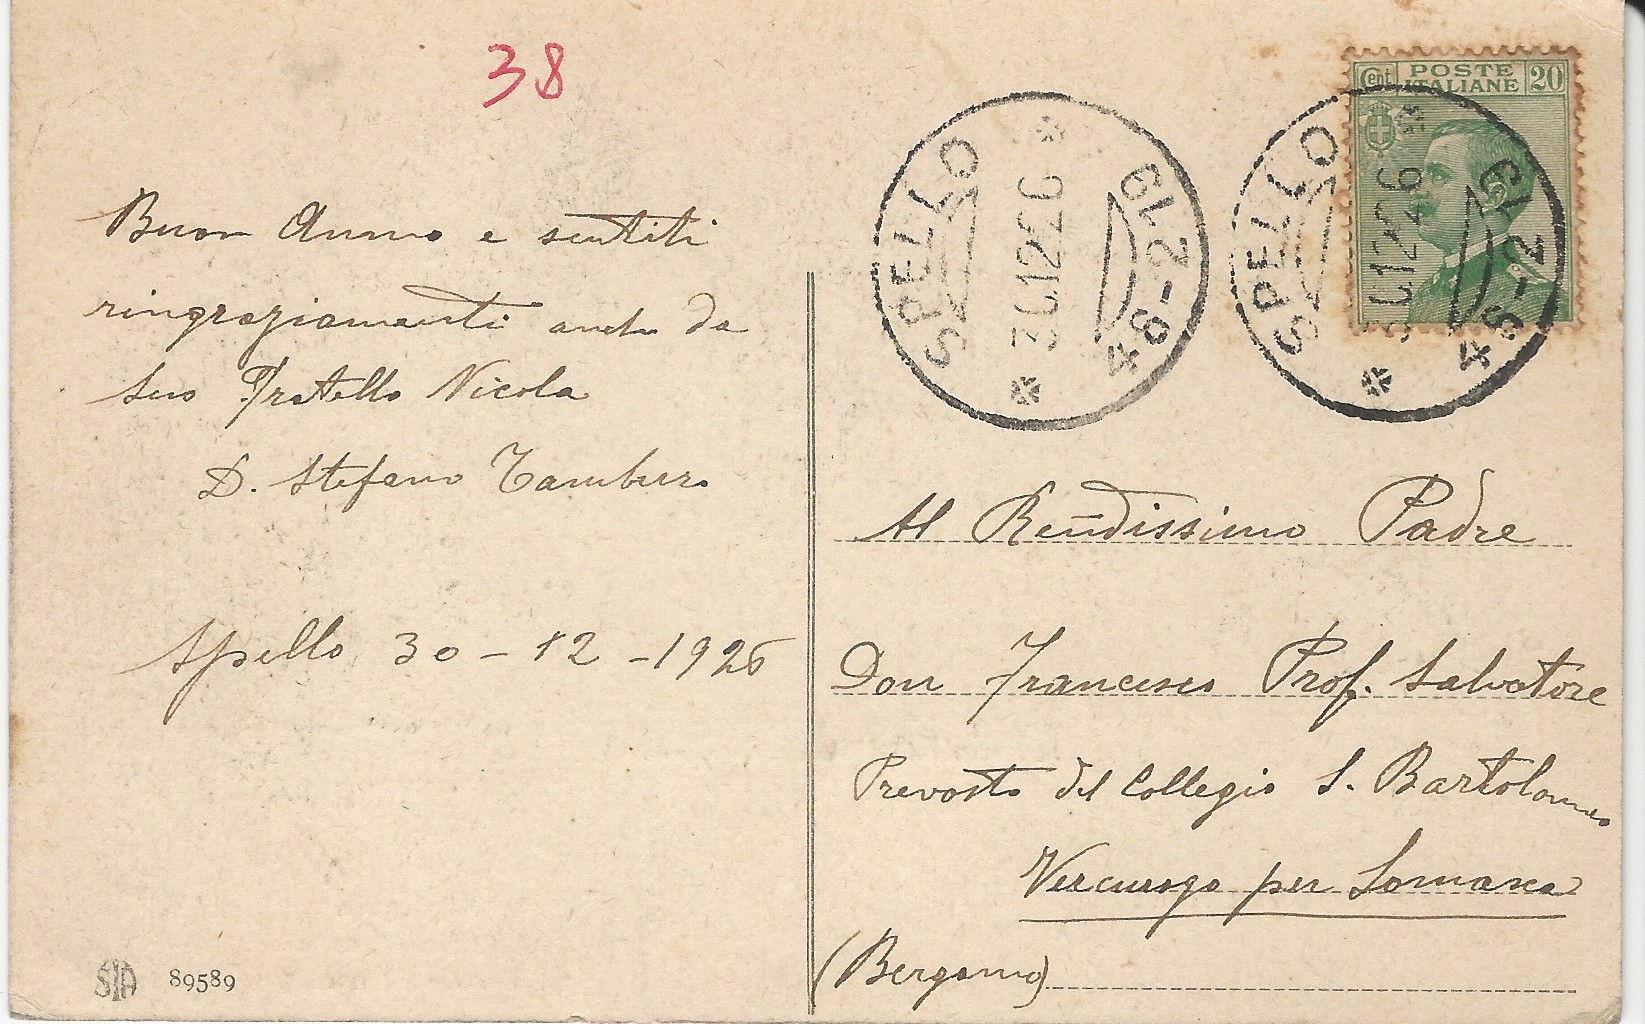 38
Buon Anno e sentiti
ringraziamenti anche da
suo Fratello Nicola
D. Stefano Tamburo
Spello 30-12-1926
SIA 89589
Cent POSTE ITALIANE 20
SPELLO
30.12.26
SPELLO
30.12.26
Al Reñdissimo Padre
Don Francesco Prof. Salvatore
Prevosto del Collegio S. Bartolomeo
Vercurago per Somasca
(Bergamo)